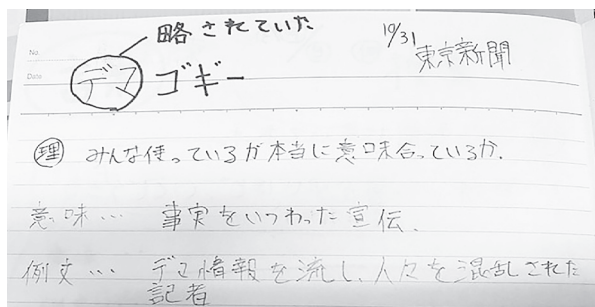 略されていた
10/31
東京新聞
No.
Date
デマゴギー
理 みんな使っているが本当に意味合っているか.
意味… 事実をいつわった宣伝.
例文… デマ情報を流し、人々を混乱しされた
記者